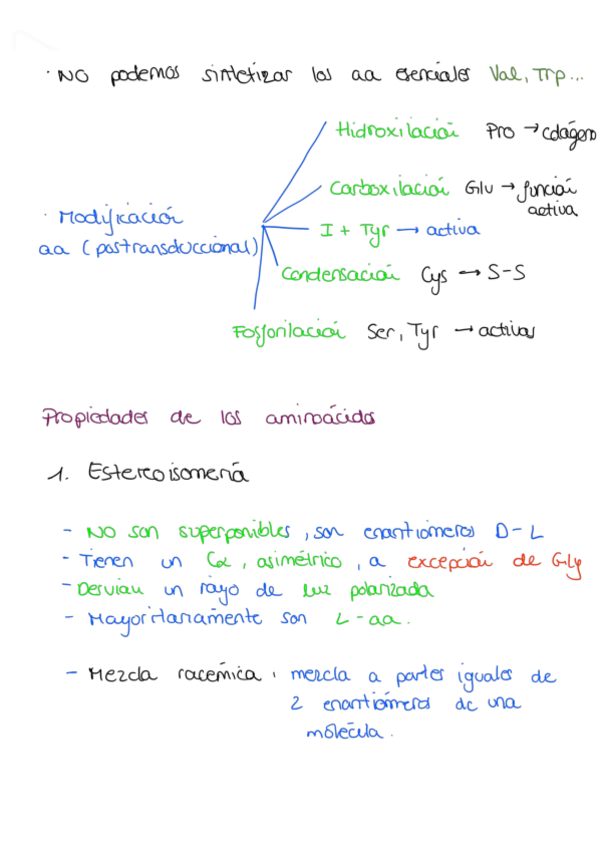 · NO podemos sintetizar los aa esenciales Val, Trp...
Hidroxilación Pro → colágeno
Carboxilación Glu → función
activa
· Modificación
aa (postransduccional)
I + Tyr → activa
Condensación Cys → S-S
Fosforilación Ser, Tyr → activas
Propiedades de los aminoácidos
1. Estereoisomería
- NO son superponibles, son enantiómeros D-L
- Tienen un Cα, asimétrico, a excepción de Gly
- Desvían un rayo de luz polarizada
- Mayoritariamente son L-aa.
- Mezcla racémica: mezcla a partes iguales de
2 enantiómeros de una
molécula.